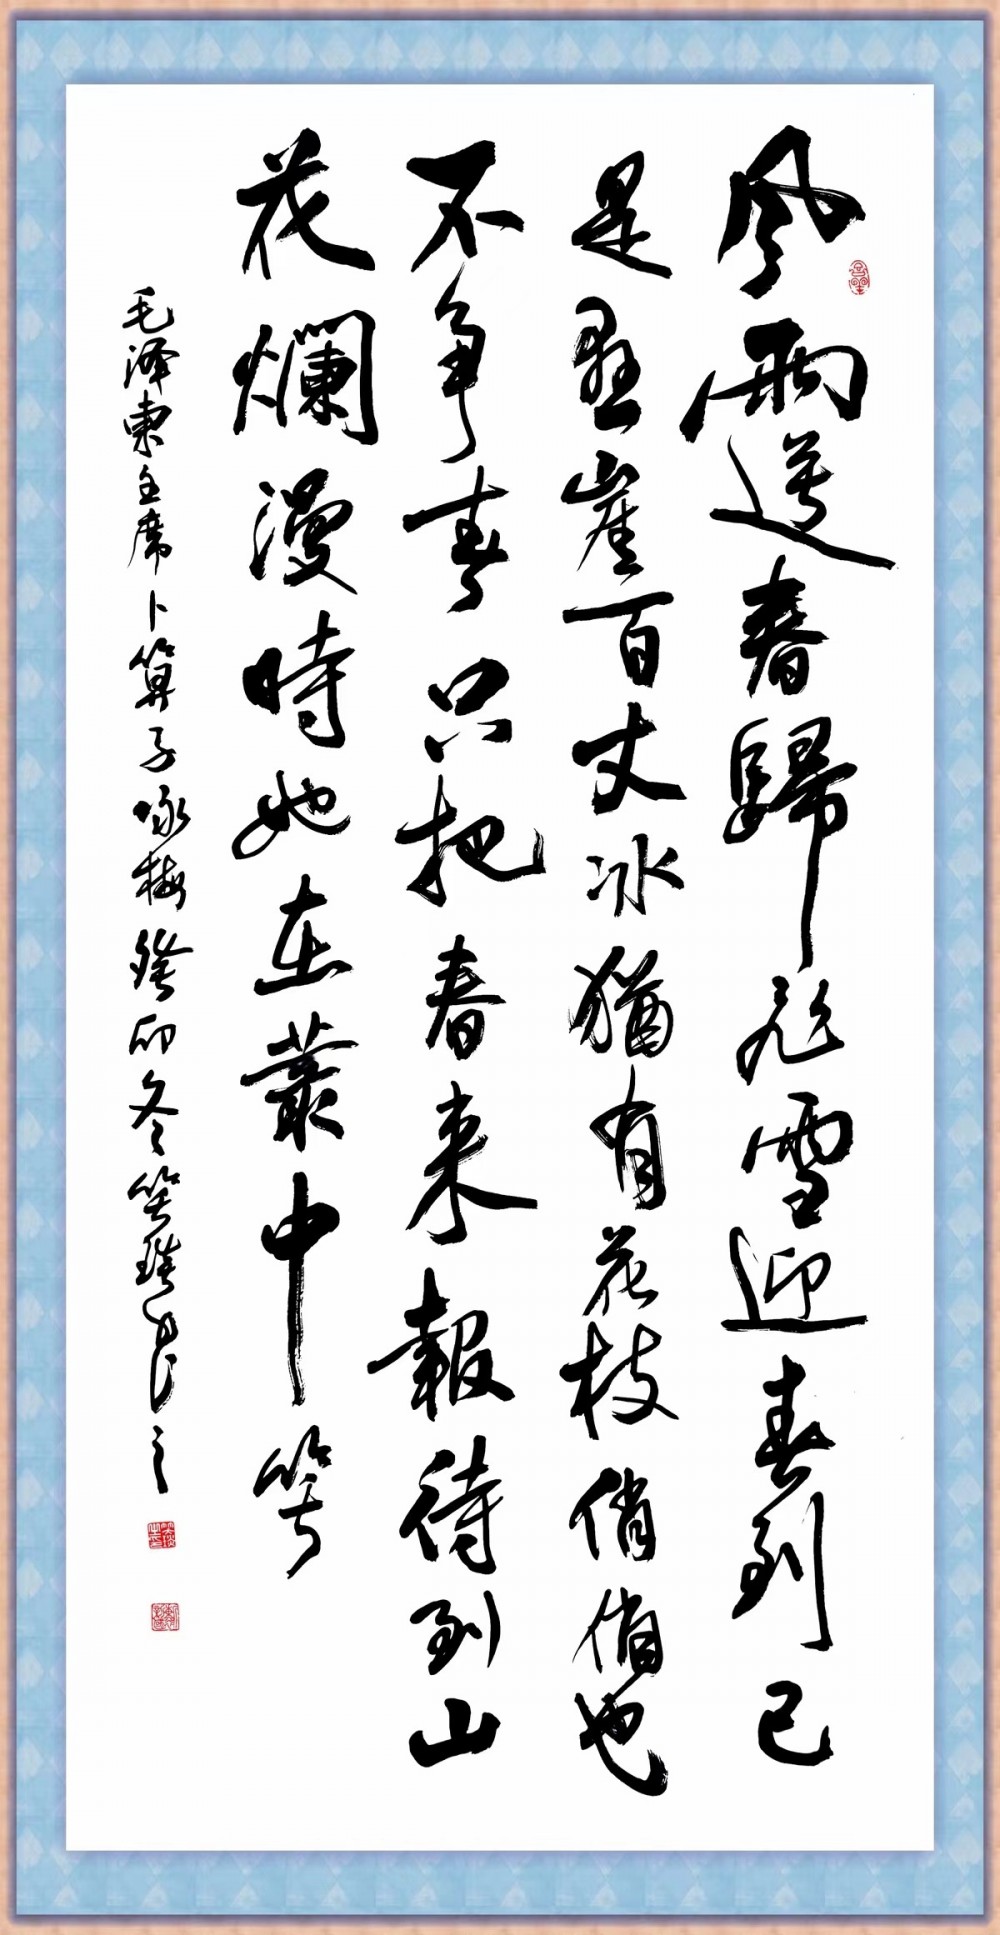 风雨送春歸飛雪迎春到已
是懸崖百丈冰猶有花枝俏俏也
不争春只把春来報待到山
花爛漫時她在叢中笑
毛泽東主席卜算子咏梅癸卯冬笑之